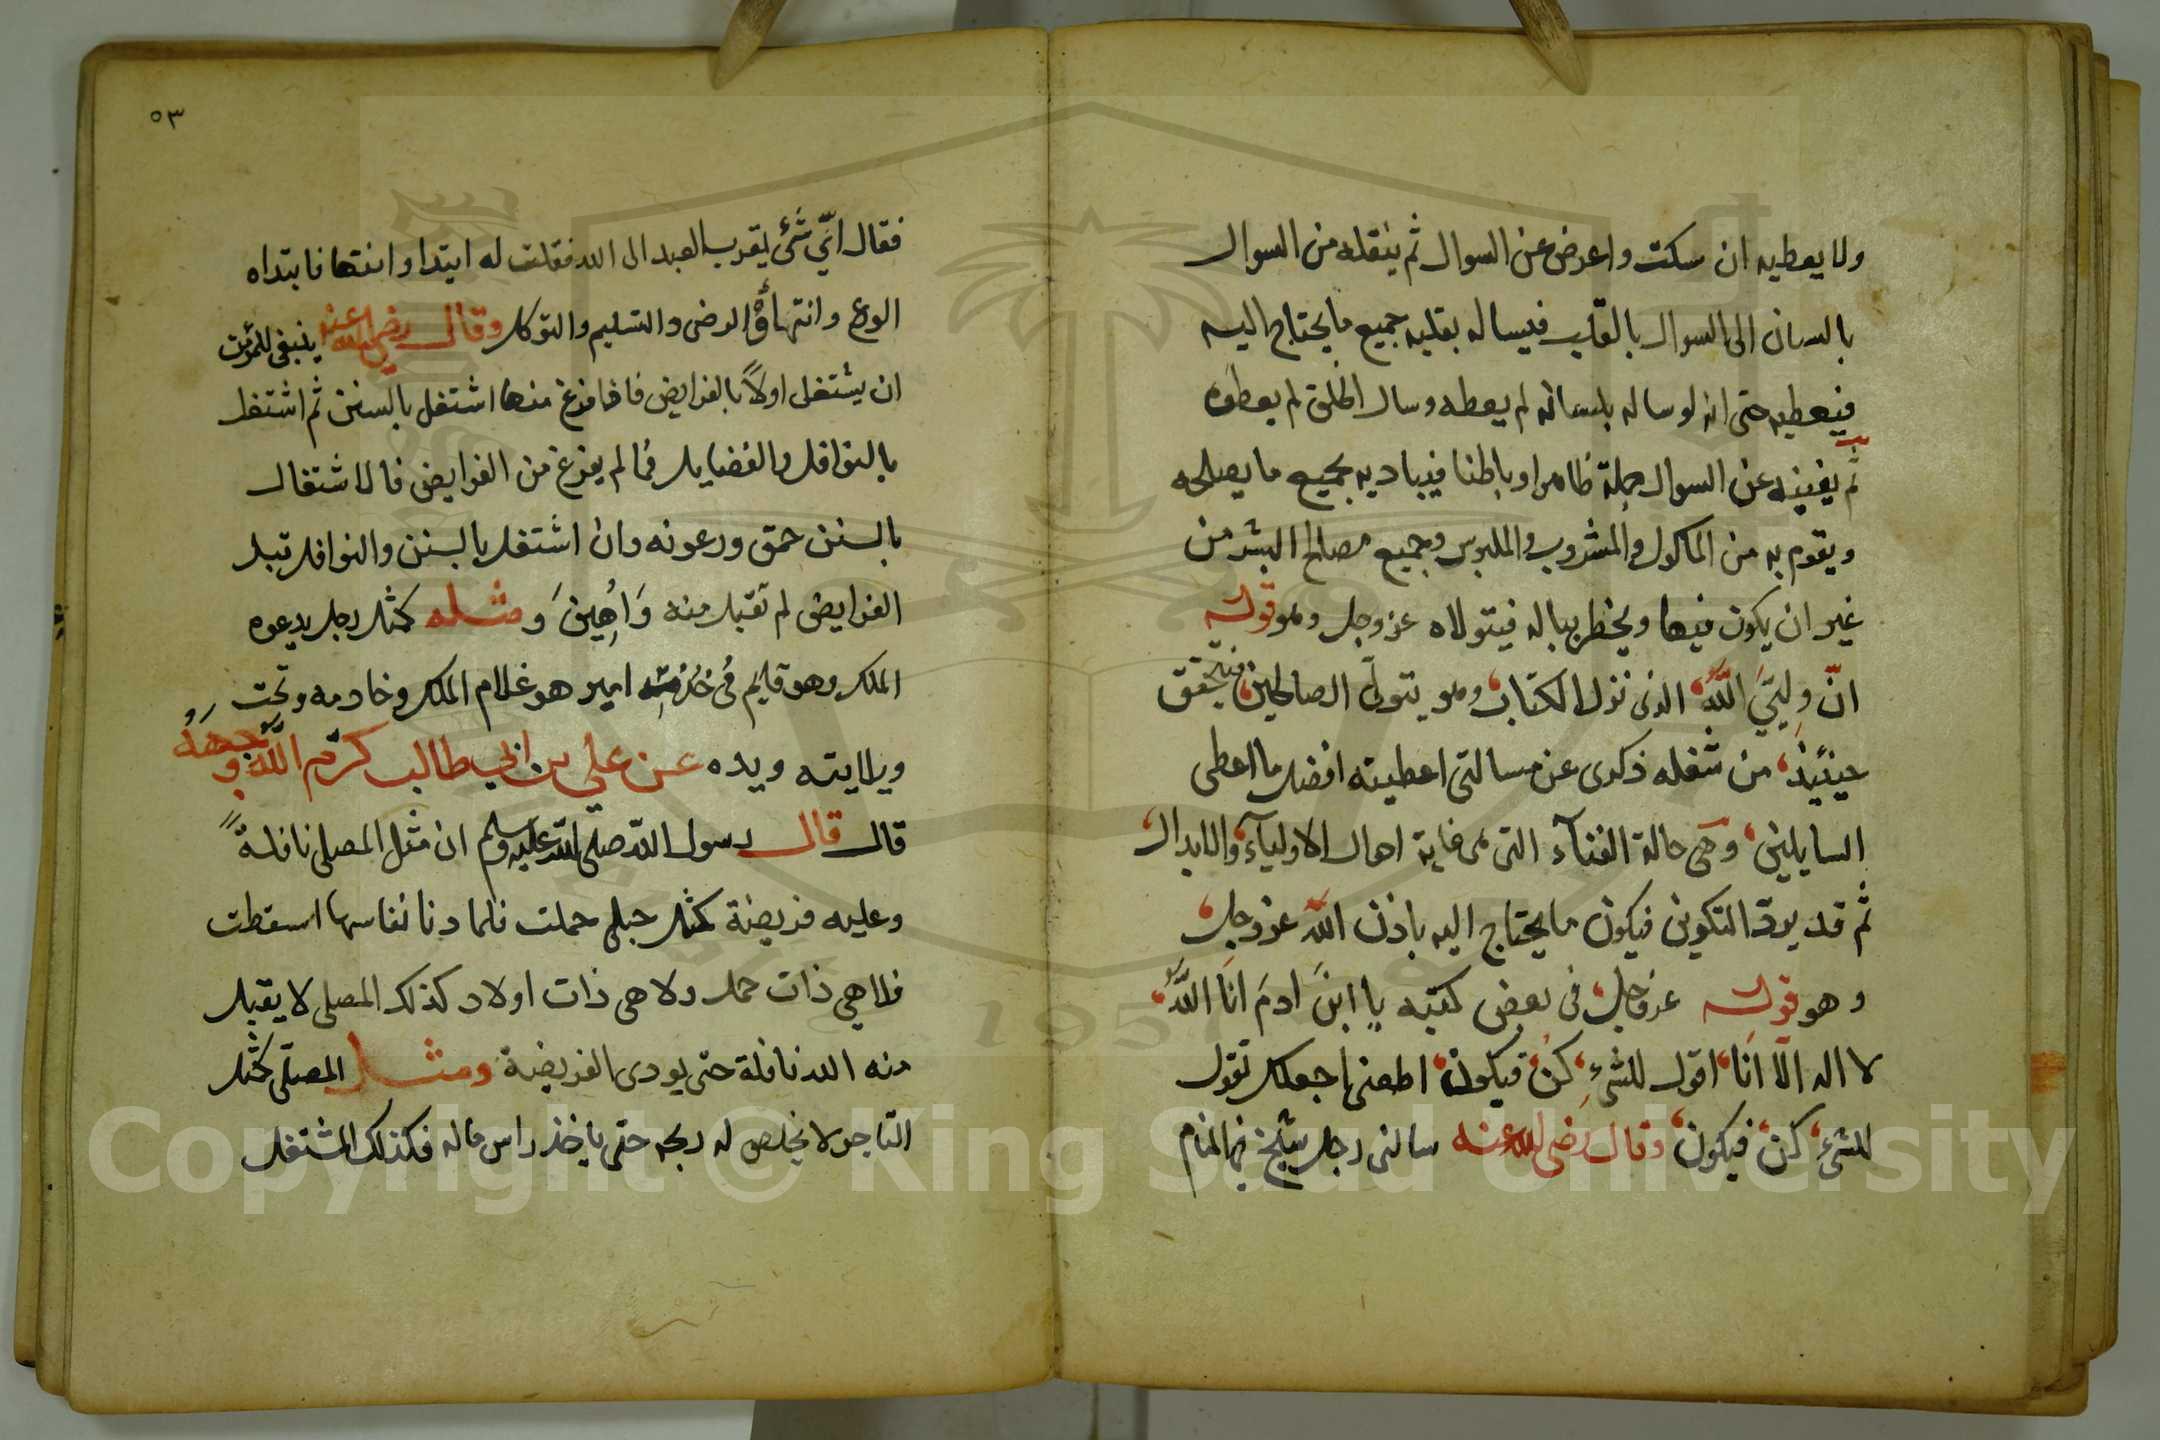 ولا يعطيه ان سكت واعرض عن السوال ثم ينقله من السوال
باللسان الى السوال بالقلب فيساله بقلبه جميع ما يحتاج اليه
فيعطيه حتى انه لو ساله بلسانه لم يعطه وسال الخلق لم يعطوه
ثم يغنيه عن السوال جملة ظاهرا وباطنا فيباديه بجميع ما يصلحه
ويقوم به من الماكول والمشروب والملبوس وجميع مصالح البشر من
غير ان يكون فيها ويخطر بباله فيتولاه عز وجل وهو قوله
انّ وليّيَ اللّهُ الذى نزل الكتاب وهو يتولّى الصالحين فيتحقق
حينئيذٍ من شغله ذكرى عن مسالتى اعطيته افضل ما اعطى
السايلين وهى حالة الفنآء التى هى غاية احوال الاوليآء والابدال
ثم قد يردّ التكوين فيكون ما يحتاج اليه باذن اللّه عز وجل
وهو قوله عز وجل فى بعض كتبه يا ابنَ ادمَ انَا اللّهُ
لا اله الّا انَا اقول للشئِ كنْ فيكون اطعنى اجعلك تقول
للشئِ كن فيكون وقال رضى الله عنه سالنى رجل شيخ فى المنام
٥٣
فقال ايّ شئ يقرب العبد الى الله فقلت له ابتدا وانتها فابتداه
الورع وانتهاؤه الرضى والتسليم والتوكل وقال رضى الله عنه ينبغى للمؤمن
ان يشتغل اولاً بالفرايض فاذا فرغ منها اشتغل بالسنن ثم اشتغل
بالنوافل والفضايل فما لم يفرغ من الفرايض فالاشتغال
بالسنن حمق ورعونه وان اشتغل بالسنن والنوافل قبل
الفرايض لم تقبل منه وَاُهِينَ وَمثله كمثل رجل يدعوه
الملك وهو قايم فى خدمته امير هو غلام الملك وخادمه وتحت
ويلايته ويده عن علي بن ابي طالب كرّم اللّه وجههُ
قال قال رسول الله صلى الله عليه وسلم ان مثل المصلى نافلةً
وعليه فريضة كمثل حبلى حملت فلما دنا نفاسها اسقطت
فلا هي ذات حمل ولا هى ذات اولاد كذلك المصلى لا يقبل
منه الله نافلة حتى يودى الفريضة ومثل المصلّى كمثل
التاجر لا يخلص له ربحه حتى ياخذ راس ماله فكذلك المشتغل
1957
Copyright © King Saud University